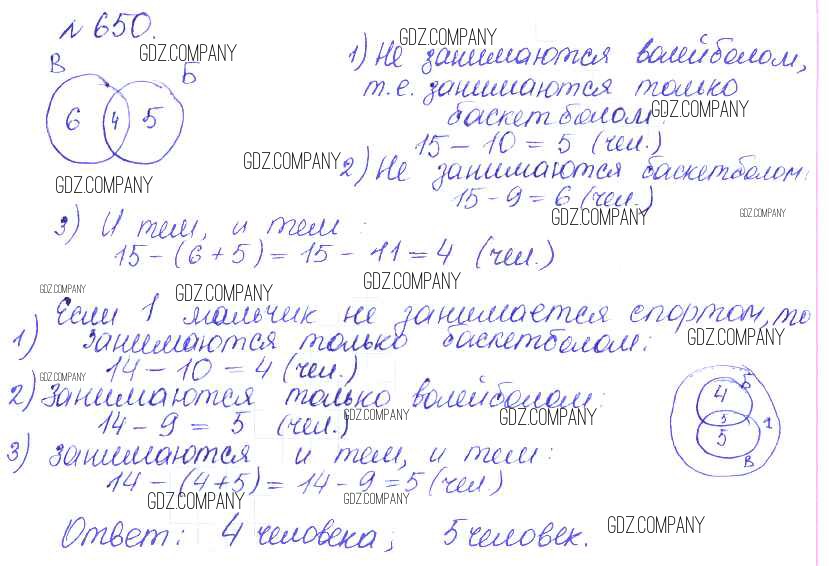 № 650.
GDZ.COMPANY
GDZ.COMPANY
В
Б
6 4 5
1) Не занимаются волейболом,
т.е. занимаются только
баскетболом:
GDZ.COMPANY
15 – 10 = 5 (чел.)
GDZ.COMPANY
2) Не занимаются баскетболом:
GDZ.COMPANY
15 - 9 = 6 (чел.)
GDZ.COMPANY
GDZ.COMPANY
3) И тем, и тем:
15 – (6 + 5) = 15 – 11 = 4 (чел.)
GDZ.COMPANY
GDZ.COMPANY
GDZ.COMPANY
Если 1 мальчик не занимается спортом, то
1) Занимаются только баскетболом:
GDZ.COMPANY
14 – 10 = 4 (чел.)
GDZ.COMPANY
2) Занимаются только волейболом:
GDZ.COMPANY
GDZ.COMPANY
14 – 9 = 5 (чел.)
Б
4
5
1
5
В
3) занимаются и тем, и тем:
14 – (4 + 5) = 14 – 9 = 5 (чел)
GDZ.COMPANY
GDZ.COMPANY
Ответ: 4 человека; 5 человек.
GDZ.COMPANY